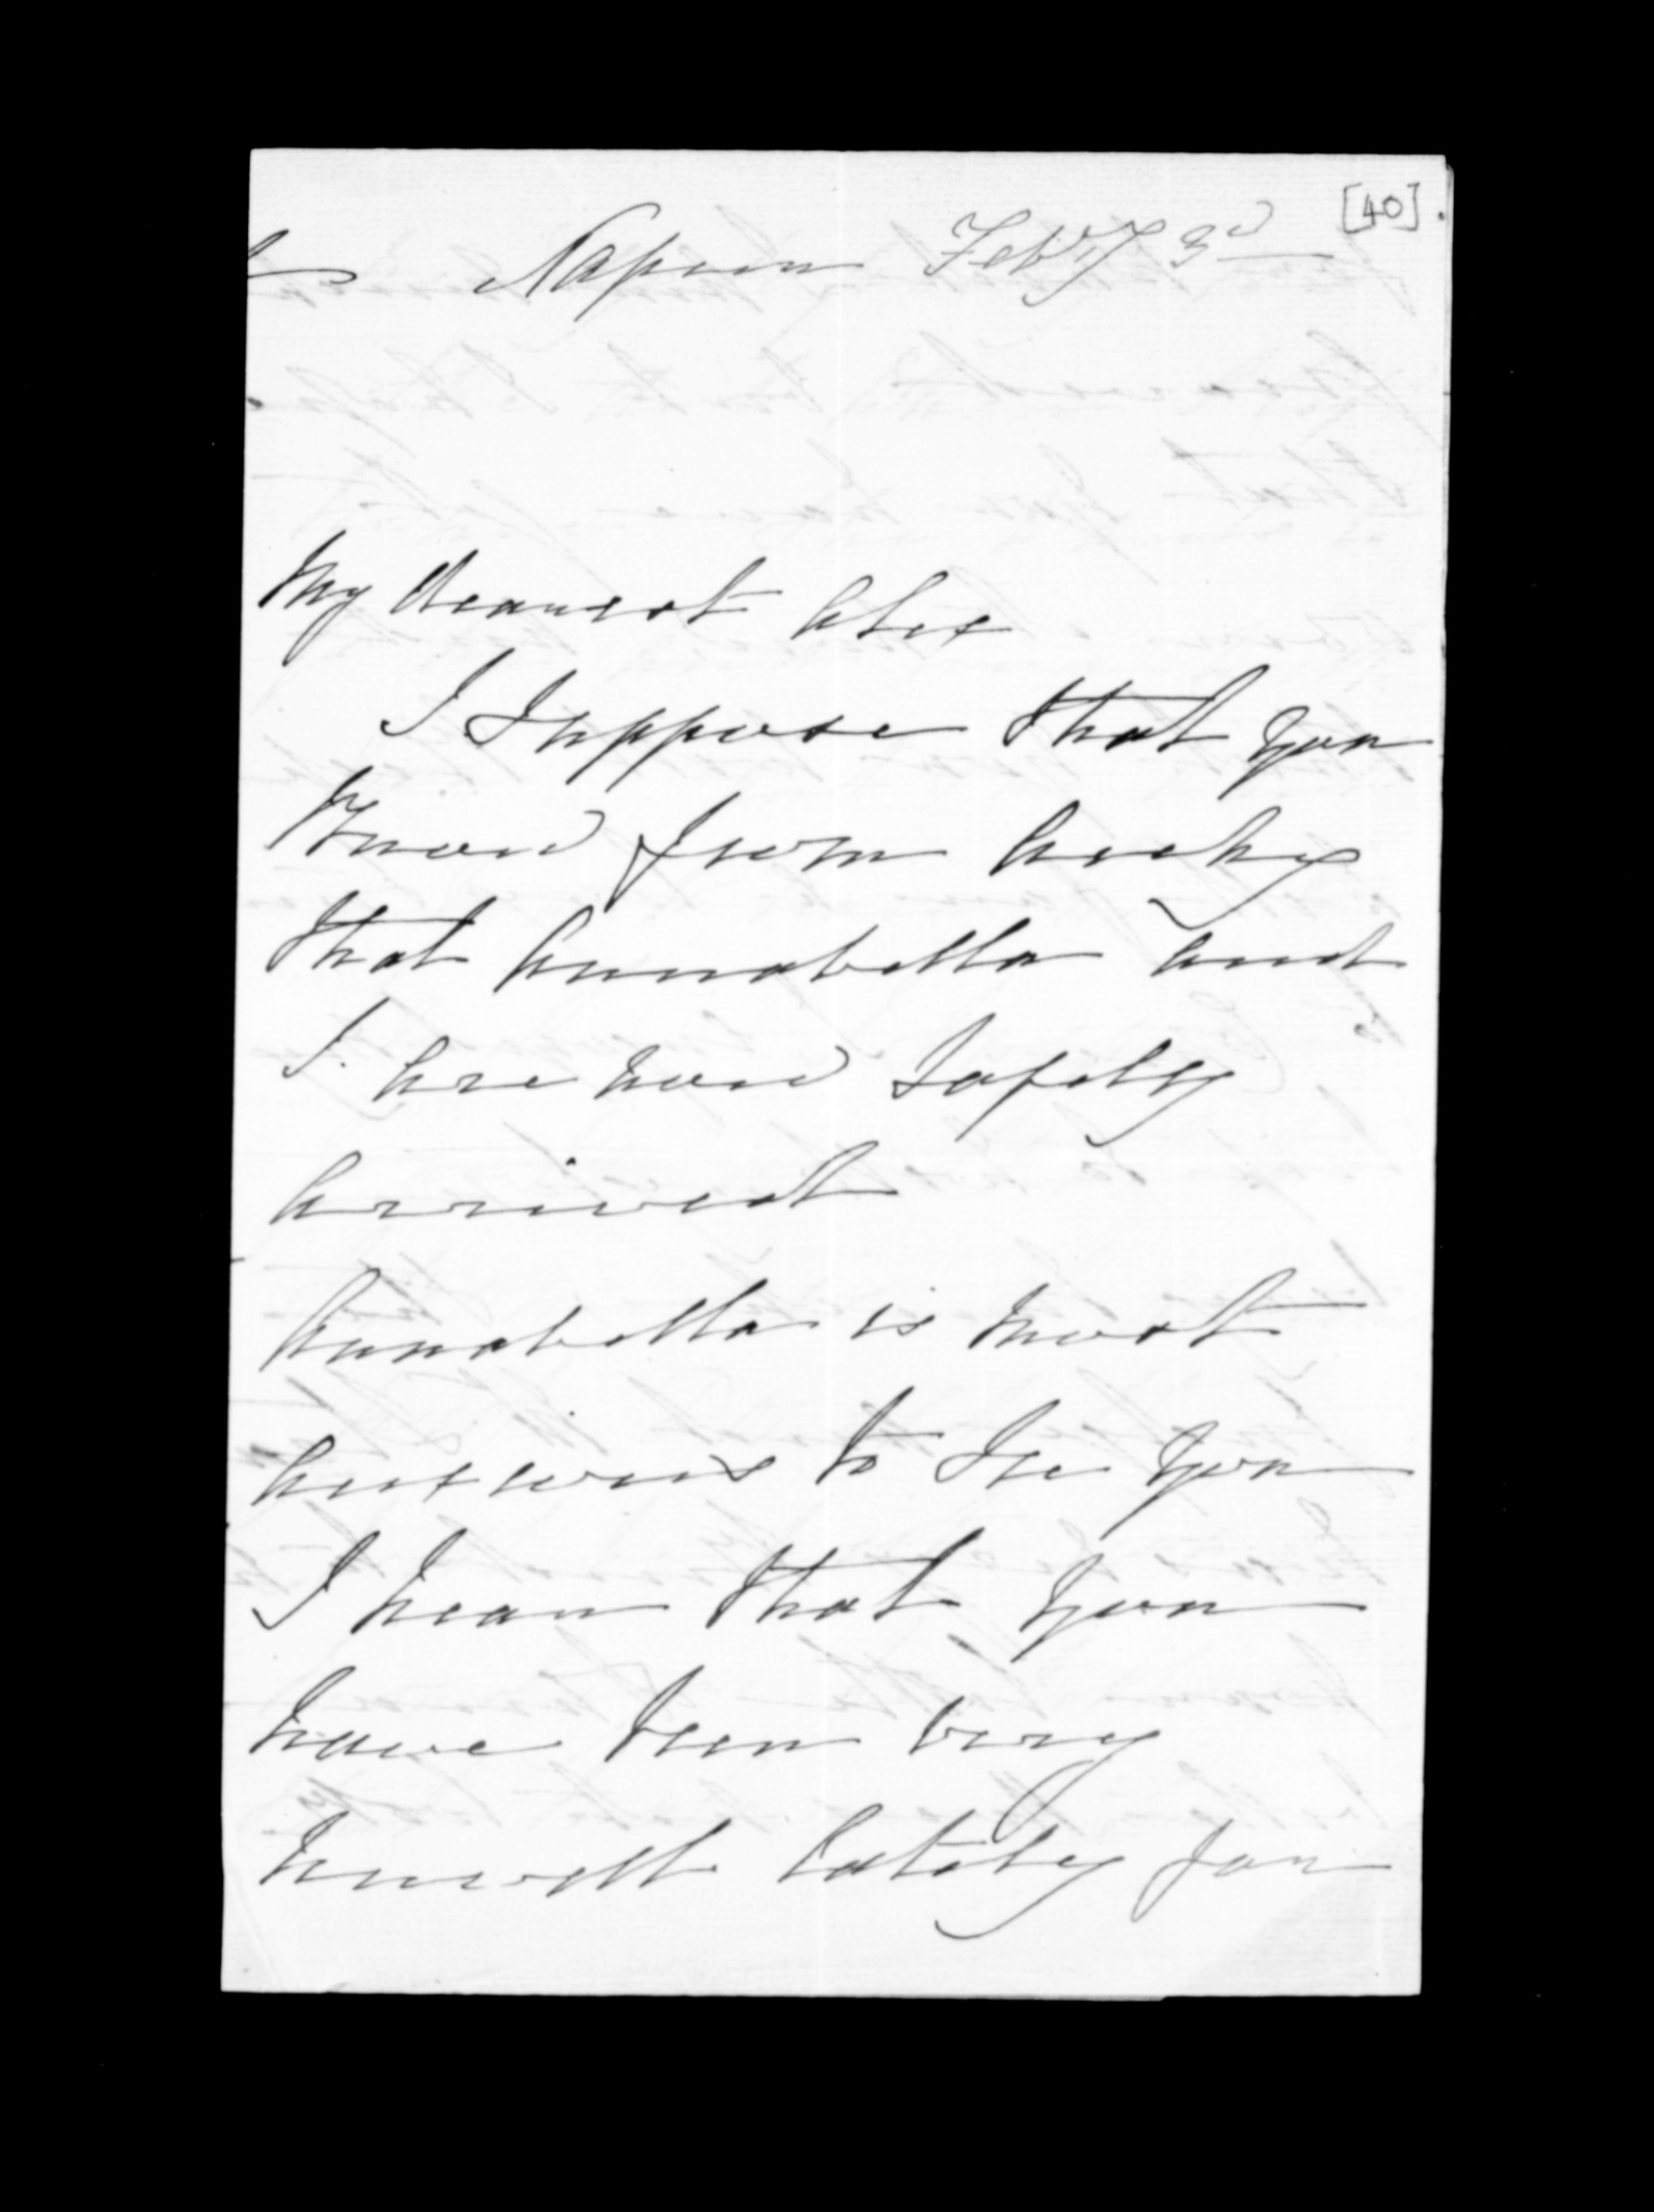 [40].
Napier Feby 3d
My dearest Alex
I Suppose that you
Know from Archy
that Annabella and
I. are now Safely
Arrived
Annabella is most
Anxious to See you
I hear that you
have been very
unwell lately for